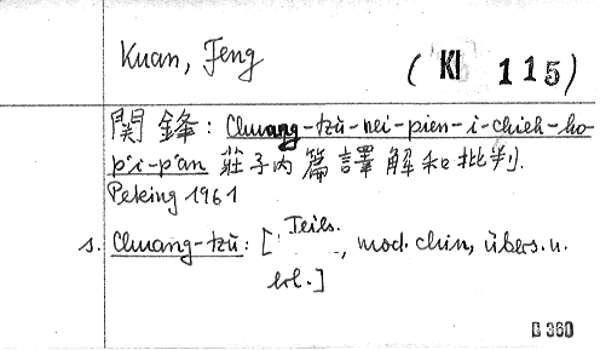 Kuan, Feng
(KI 115)
関鋒: Chuang-tzŭ-nei-pien-i-chieh-ho-
p'i-p'an 莊子内篇譯解和批判.
Peking 1961
s. Chuang-tzŭ: [Teils., mod. chin, übers. u.
erl.]
B 360